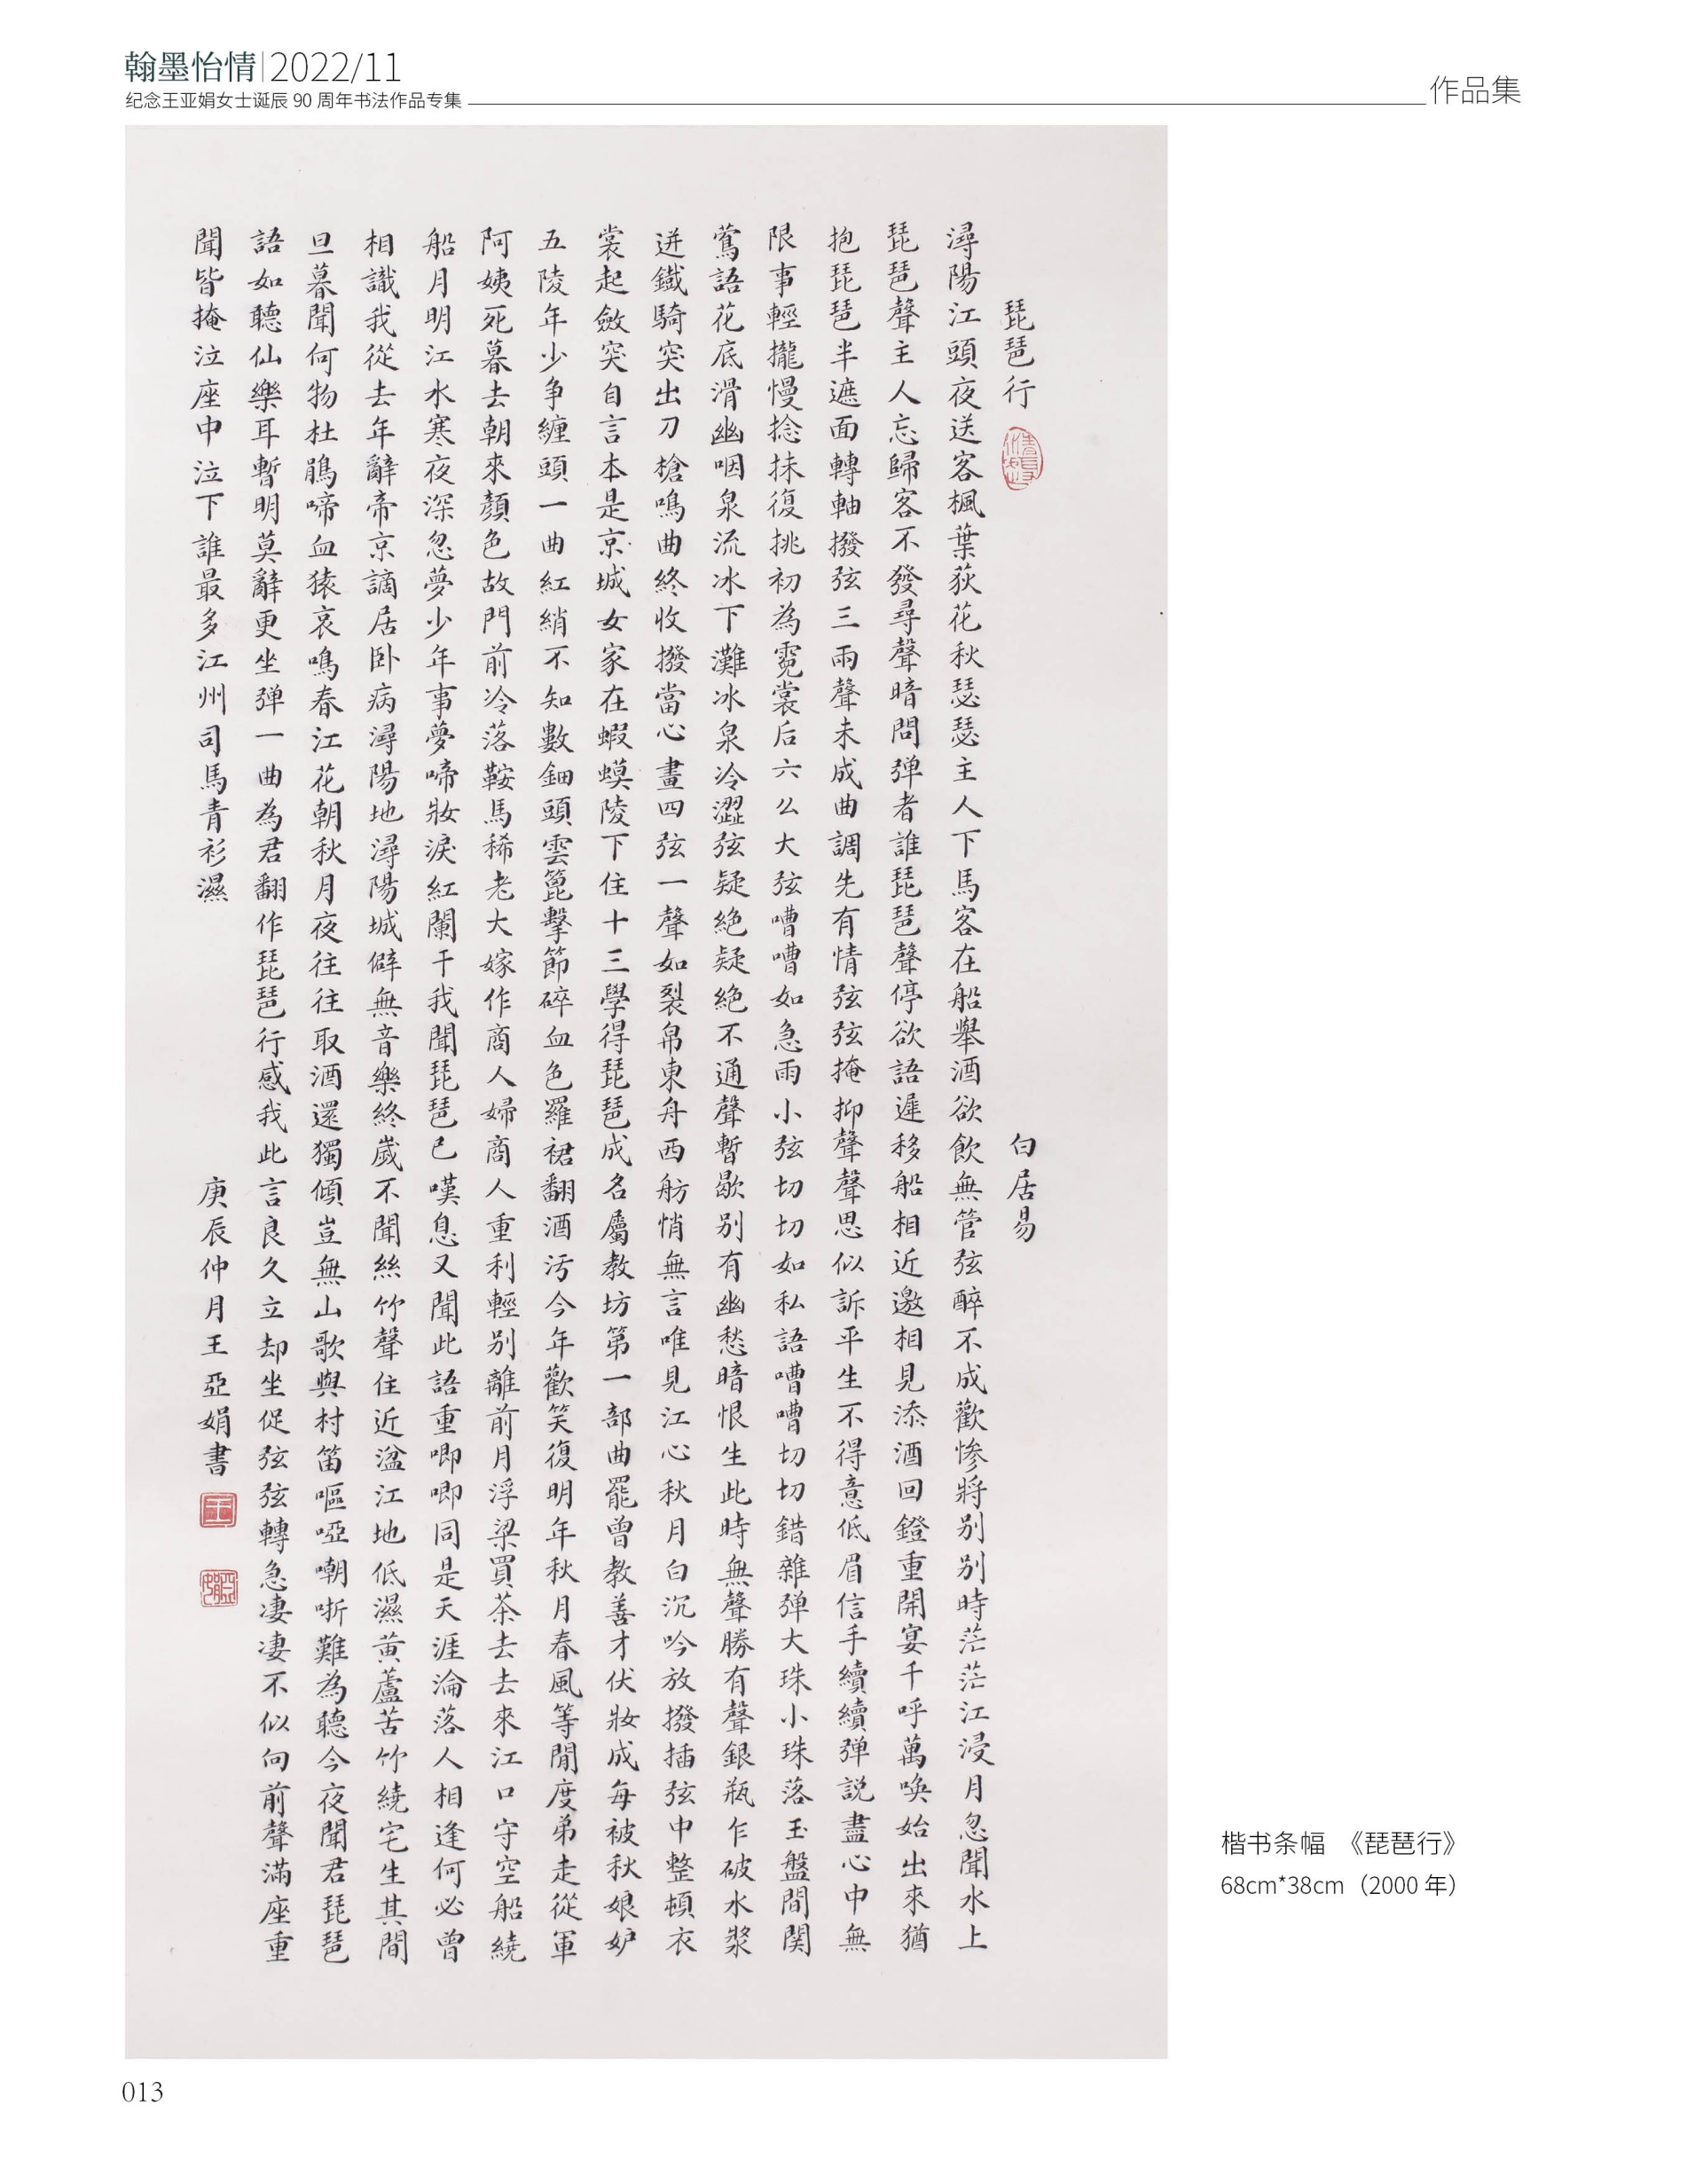 翰墨怡情|2022/11
纪念王亚娟女士诞辰 90 周年书法作品专集
作品集
琵琶行 白居易
潯陽江頭夜送客楓葉荻花秋瑟瑟主人下馬客在船舉酒欲飲無管弦醉不成歡惨將别别時茫茫江浸月忽聞水上
琵琶聲主人忘歸客不發尋聲暗問弹者誰琵琶聲停欲語遲移船相近邀相見添酒回鐙重開宴千呼萬喚始出來猶
抱琵琶半遮面轉軸撥弦三兩聲未成曲調先有情弦弦掩抑聲聲思似訴平生不得意低眉信手續續弹説盡心中無
限事輕攏慢捻抹復挑初為霓裳后六么大弦嘈嘈如急雨小弦切切如私語嘈嘈切切錯雜弹大珠小珠落玉盤間関
鶯語花底滑幽咽泉流冰下灘冰泉冷澀弦疑絶疑絶不通聲暫歇别有幽愁暗恨生此時無聲勝有聲銀瓶乍破水漿
迸鐵騎突出刀槍鳴曲終收撥當心畫四弦一聲如裂帛東舟西舫悄無言唯見江心秋月白沉吟放撥插弦中整頓衣
裳起斂突自言本是京城女家在蝦蟆陵下住十三學得琵琶成名屬教坊第一部曲罷曾教善才伏妝成每被秋娘妒
五陵年少争纏頭一曲紅綃不知數鈿頭雲篦擊節碎血色羅裙翻酒汚今年歡笑復明年秋月春風等閒度弟走從軍
阿姨死暮去朝來顏色故門前冷落鞍馬稀老大嫁作商人婦商人重利輕别離前月浮梁買茶去去來江口守空船繞
船月明江水寒夜深忽夢少年事夢啼妝淚紅闌干我聞琵琶已嘆息又聞此語重唧唧同是天涯淪落人相逢何必曾
相識我從去年辭帝京謫居卧病潯陽地潯陽城僻無音樂終嵗不聞絲竹聲住近湓江地低濕黄蘆苦竹繞宅生其間
旦暮聞何物杜鵑啼血猿哀鳴春江花朝秋月夜往往取酒還獨傾豈無山歌與村笛嘔啞嘲哳難為聽今夜聞君琵琶
語如聽仙樂耳暫明莫辭更坐弹一曲為君翻作琵琶行感我此言良久立却坐促弦弦轉急凄凄不似向前聲滿座重
聞皆掩泣座中泣下誰最多江州司馬青衫濕
庚辰仲月王亞娟書
王
楷书条幅 《琵琶行》
68cm*38cm（2000 年）
013